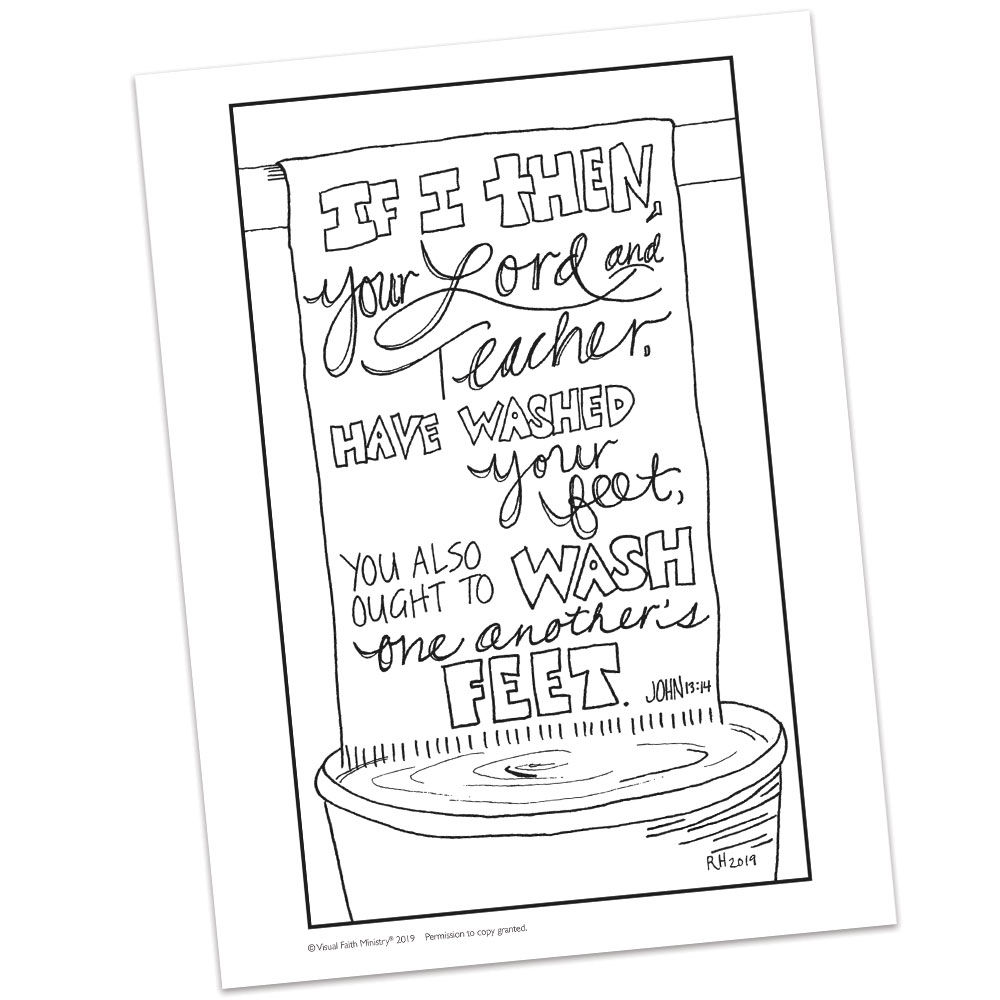 IF I THEN,
your Lord and
Teacher,
HAVE WASHED
your
feet,
YOU ALSO
OUGHT TO WASH
one another's
FEET. JOHN 13:14
RH 2019
© Visual Faith Ministry® 2019 Permission to copy granted.